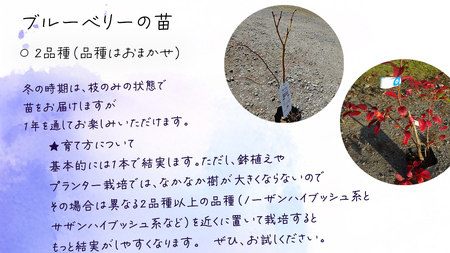 ブルーベリーの苗
○ 2品種(品種はおまかせ)
冬の時期は、枝のみの状態で
苗をお届けしますが
1年を通してお楽しみいただけます。
★育て方について
基本的には1本で結実します。ただし、鉢植えや
プランター栽培では、なかなか樹が大きくならないので
その場合は異なる2品種以上の品種(ノーザンハイブッシュ系と
サザンハイブッシュ系など)を近くに置いて栽培すると
もっと結実がしやすくなります。 ぜひ、お試しください。